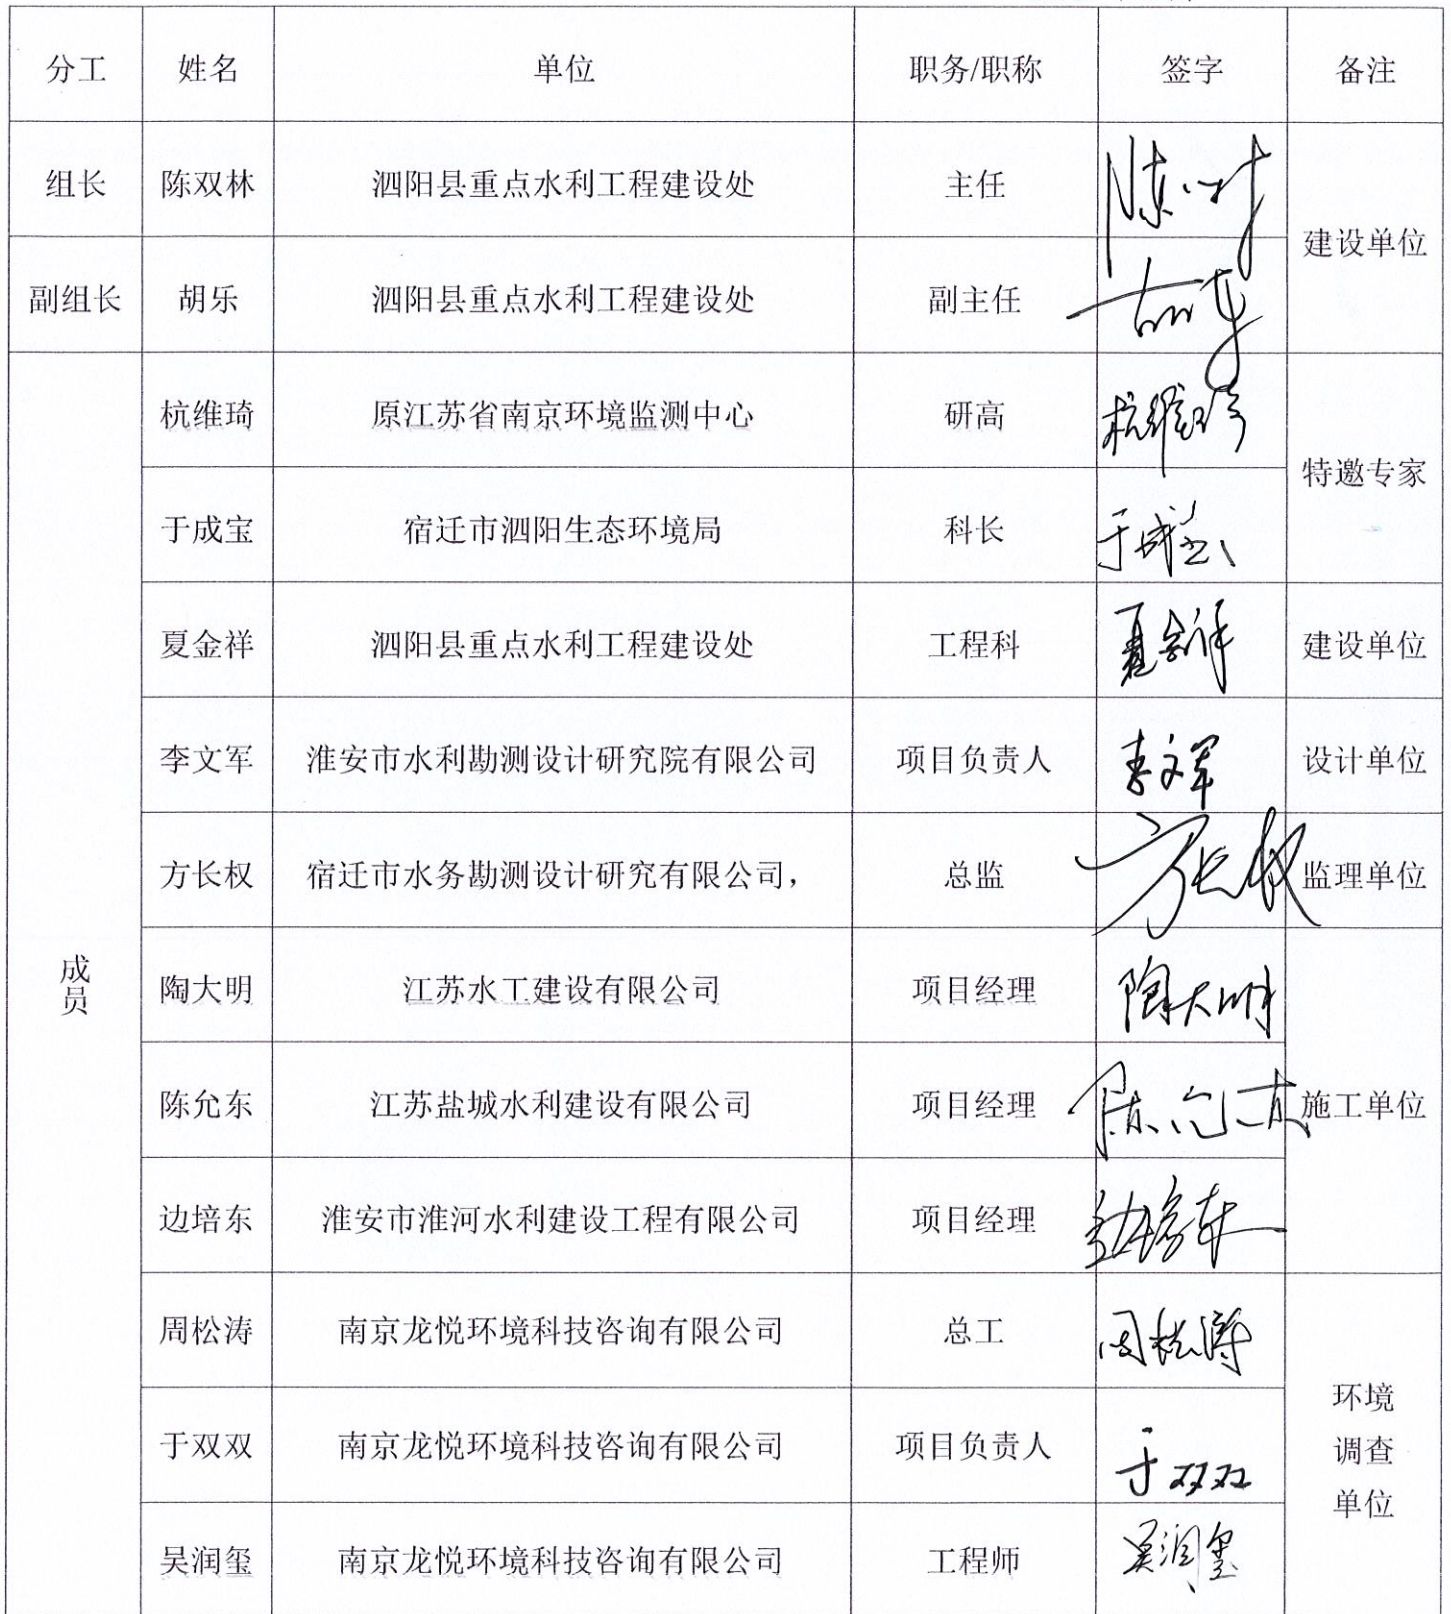 分工 姓名 单位 职务/职称 签字 备注
组长 陈双林 泗阳县重点水利工程建设处 主任 陈双林
建设单位
副组长 胡乐 泗阳县重点水利工程建设处 副主任 胡乐
杭维琦 原江苏省南京环境监测中心 研高 杭维琦
特邀专家
于成宝 宿迁市泗阳生态环境局 科长 于成宝
夏金祥 泗阳县重点水利工程建设处 工程科 夏金祥 建设单位
李文军 淮安市水利勘测设计研究院有限公司 项目负责人 李文军 设计单位
方长权 宿迁市水务勘测设计研究有限公司， 总监 方长权 监理单位
成员
陶大明 江苏水工建设有限公司 项目经理 陶大明
陈允东 江苏盐城水利建设有限公司 项目经理 陈允东 施工单位
边培东 淮安市淮河水利建设工程有限公司 项目经理 边培东
周松涛 南京龙悦环境科技咨询有限公司 总工 周松涛
环境
调查
单位
于双双 南京龙悦环境科技咨询有限公司 项目负责人 于双双
吴润玺 南京龙悦环境科技咨询有限公司 工程师 吴润玺